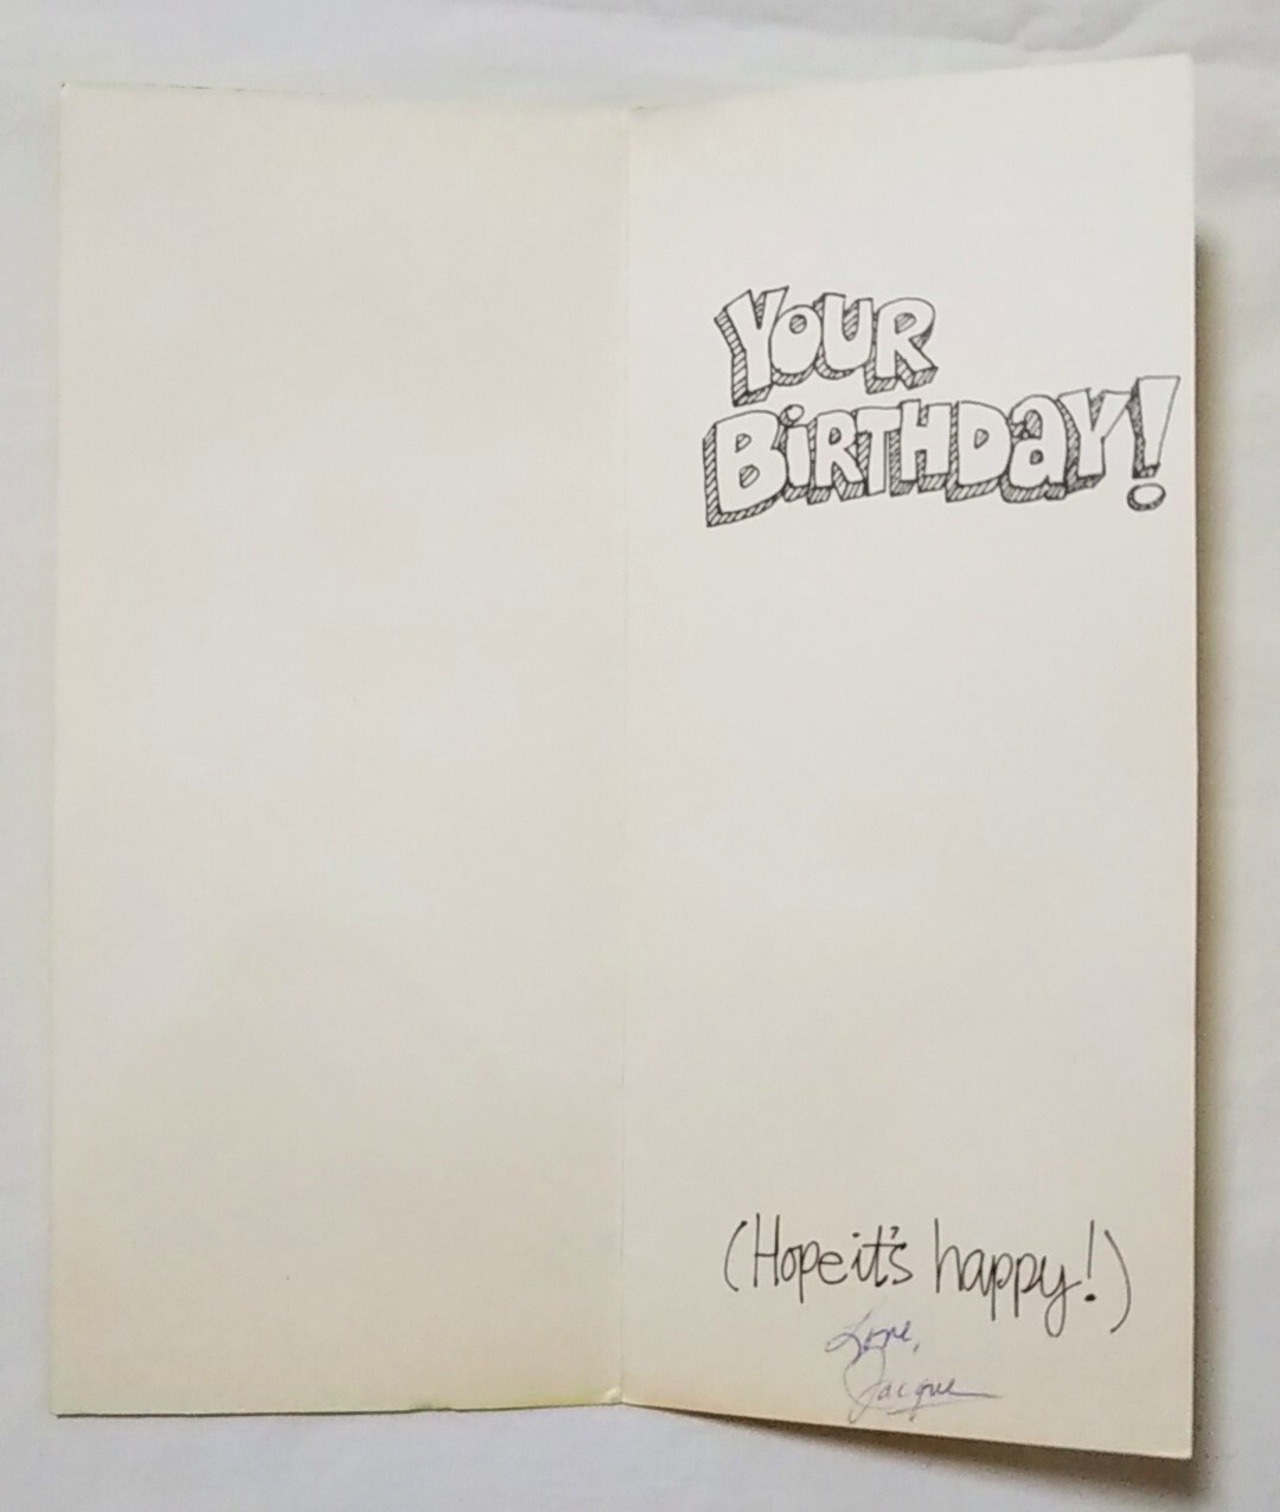 YOUR
BiRTHDaY!
(Hope it's happy!)
Love,
Jacque